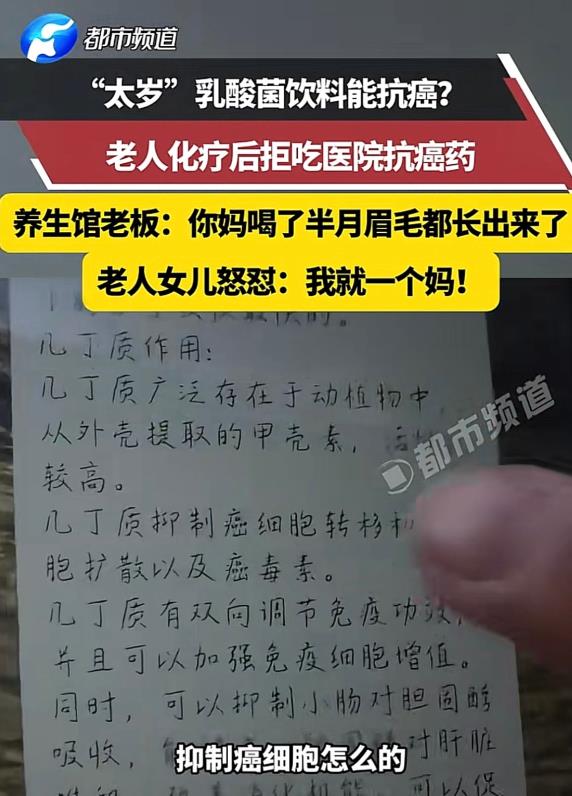 都市频道
“太岁”乳酸菌饮料能抗癌?
老人化疗后拒吃医院抗癌药
养生馆老板：你妈喝了半月眉毛都长出来了
老人女儿怒怼：我就一个妈！
几丁质作用:
几丁质广泛存在于动植物中,
从外壳提取的甲壳素,
较高。
都市频道
几丁质抑制癌细胞转移
胞扩散以及癌毒素。
几丁质有双向调节免疫功效,
并且可以加强免疫细胞增值。
同时,可以抑制小肠对胆固醇
吸收, 对肝脏
抑制癌细胞怎么的
可以保